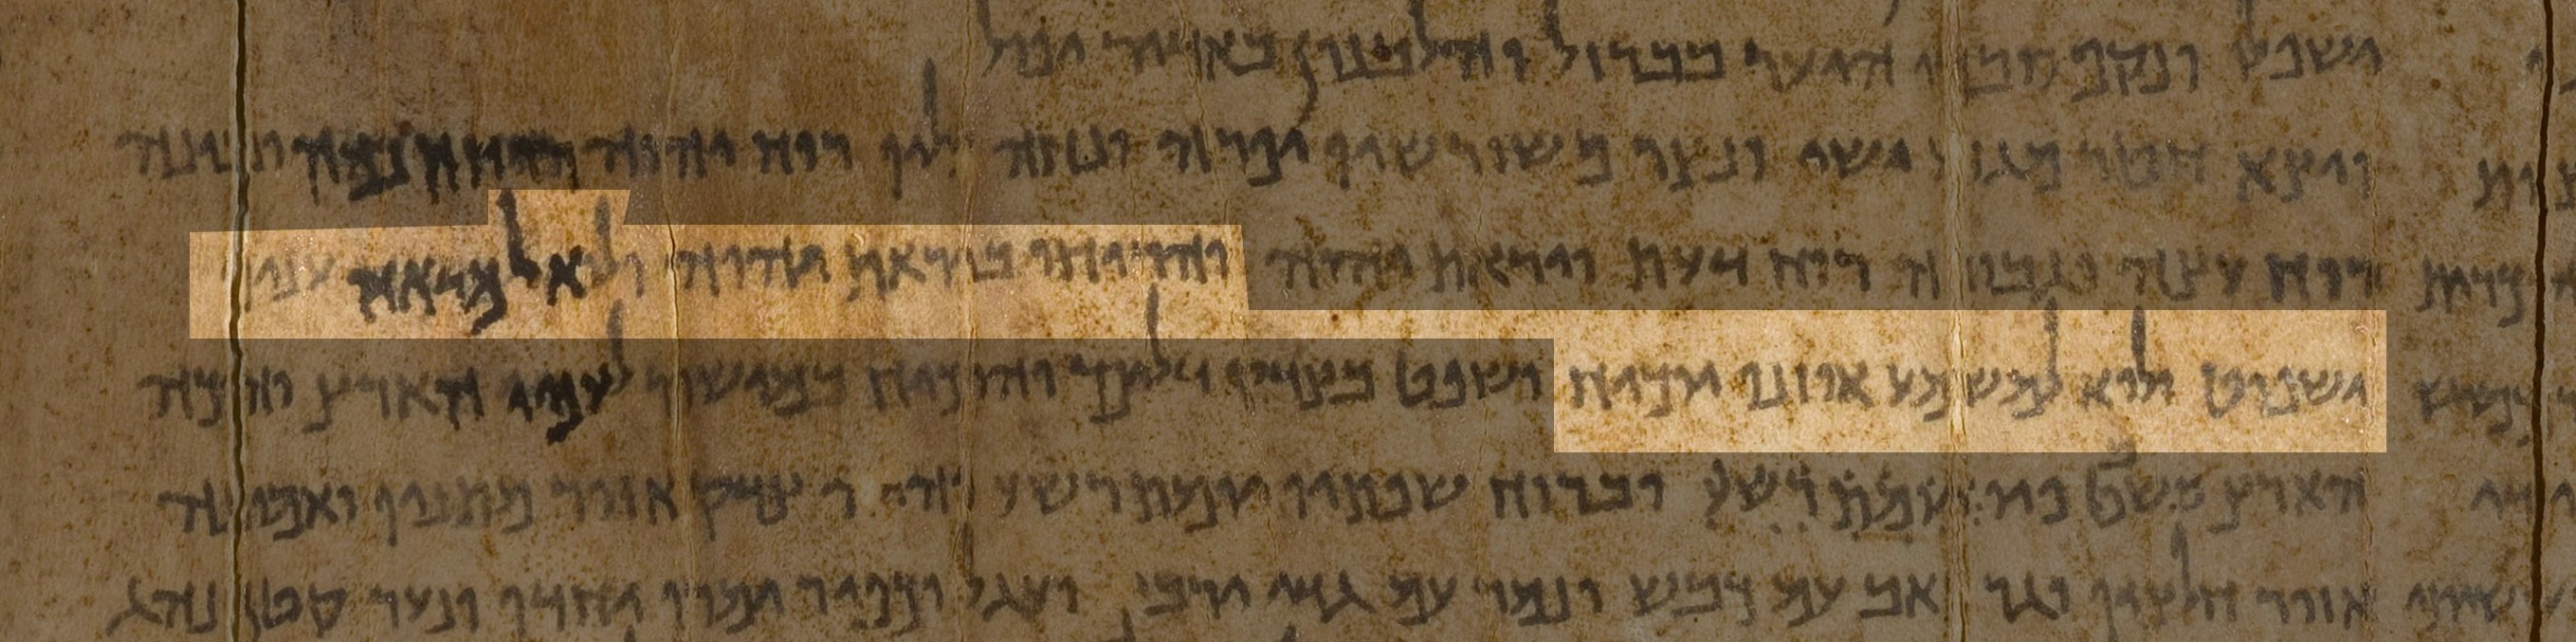 ישפלו ונקפ סבכי היער בברזל והלבנון באדיר יפול
ויצא חטר מגזע ישי ונצר משורשיו יפרה ונחה עליו רוח יהוה רוח חכמה ובינה
רוח עצה וגבורה רוח דעת ויראת יהוה והריחו ביראת יהוה ולוא למראה עיניו
ישפוט ולוא למשמע אוזניו יוכיח ושפט בצדק דלים והוכיח במישור לענוי הארץ והכה
הארץ בשבט פיו יומת רשע וברוח שפתיו יומת רשע והיה צדק אזור מתניו ואמונה
אזור חלציו וגר זאב עם כבש ונמר עם גדי ירבץ ועגל וכפיר ימרו יחדיו ונער קטן נוהג